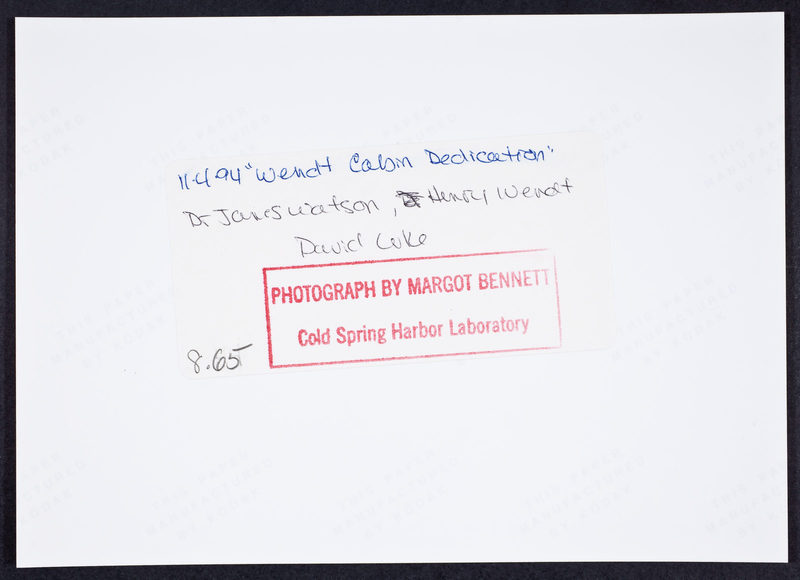 11-4-94 "Wendt Cabin Dedication"
Dr James Watson, Henry Wendt
David Luke
PHOTOGRAPH BY MARGOT BENNETT
Cold Spring Harbor Laboratory
8.65
THIS PAPER
MANUFACTURED
BY KODAK